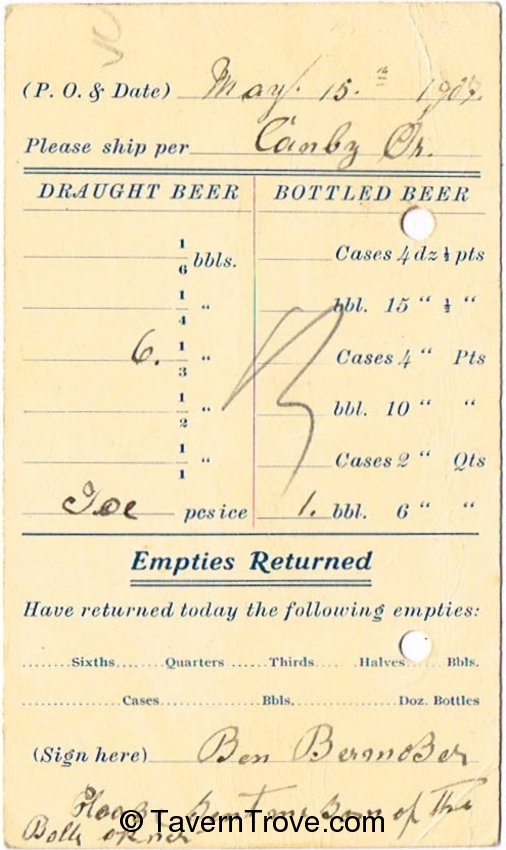 (P. O. & Date) May. 15. 190
Please ship per Canby Or.
DRAUGHT BEER BOTTLED BEER
1/6 bbls. Cases 4 dz ½ pts
1/4 " bbl. 15 " ½ "
6. 1/3 " Cases 4 " Pts
1/2 " bbl. 10 " "
1/1 " Cases 2 " Qts
Ice pcs ice 1. bbl. 6 " "
Empties Returned
Have returned today the following empties:
Sixths Quarters Thirds Halves Bbls.
Cases Bbls. Doz. Bottles
(Sign here) Ben
of the
© TavernTrove.com